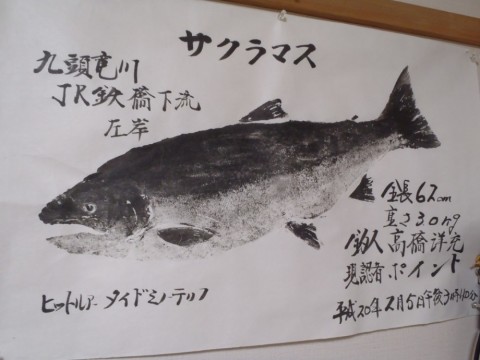 サクラマス
九頭竜川
JR鉄橋下流
左岸
全長62cm
重さ3.0kg
釣人 高橋洋充
現認者 ポイント
平成20年2月5日午後3時10分
ヒットルアー タイドミノーテリフ